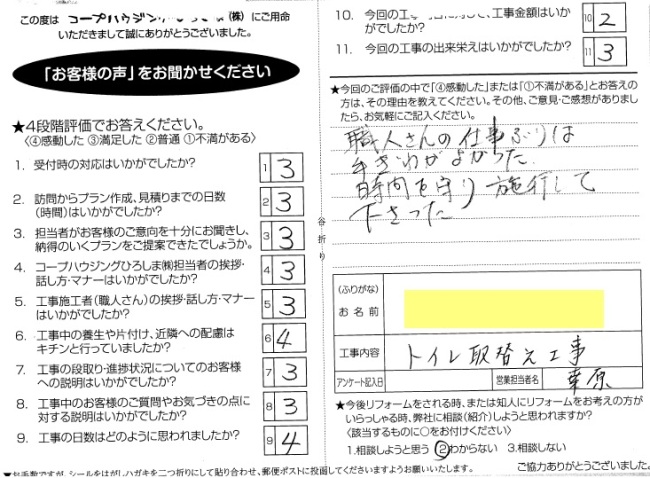 この度は コープハウジング (株)にご用命
いただきまして誠にありがとうございました。
「お客様の声」をお聞かせください
★4段階評価でお答えください。
〈④感動した ③満足した ②普通 ①不満がある〉
1. 受付時の対応はいかがでしたか? 1 3
2. 訪問からプラン作成、見積りまでの日数
(時間)はいかがでしたか? 2 3
3. 担当者がお客様のご意向を十分にお聞きし、
納得のいくプランをご提案できたでしょうか。 3 3
4. コープハウジングひろしま㈱担当者の挨拶・
話し方・マナーはいかがでしたか? 4 3
5. 工事施工者(職人さん)の挨拶・話し方・マナー
はいかがでしたか? 5 3
6. 工事中の養生や片付け、近隣への配慮は
キチンと行っていましたか? 6 4
7. 工事の段取り・進捗状況についてのお客様
への説明はいかがでしたか? 7 3
8. 工事中のお客様のご質問やお気づきの点に
対する説明はいかがでしたか? 8 3
9. 工事の日数はどのように思われましたか? 9 4
谷折り
10. 今回の工事 に対して、工事金額はいか
がでしたか? 10 2
11. 今回の工事の出来栄えはいかがでしたか? 11 3
★今回のご評価の中で「④感動した」または「①不満がある」とお答えの
方は、その理由を教えてください。その他、ご意見・ご感想がありまし
たら、お気軽にご記入ください。
職人さんの仕事ぶりは
手ぎわがよかった
時間を守り施行して
下さった
(ふりがな)
お名前
工事内容 トイレ取替え工事
アンケート記入日 営業担当者名 栗原
★今後リフォームをされる時、または知人にリフォームをお考えの方が
いらっしゃる時、弊社に相談(紹介)しようと思われますか?
〈該当するものに○をお付けください〉
1.相談しようと思う ②わからない 3.相談しない
ご協力ありがとうございました。
▼お手数ですが、シールをはがしハガキを二つ折りにして貼り合わせ、郵便ポストに投函してくださいますようお願いいたします。